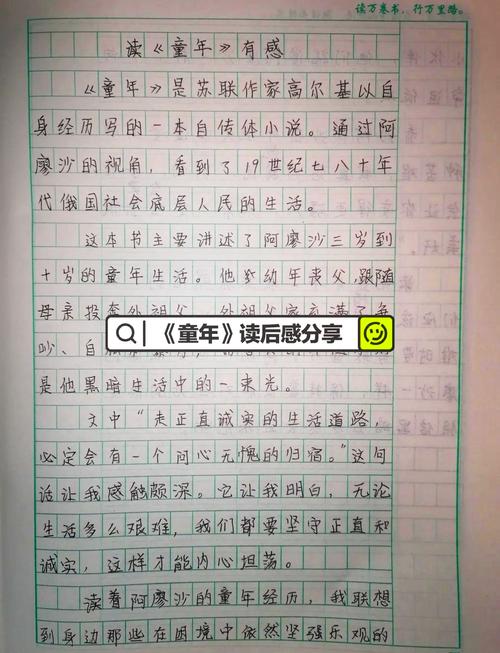 读万卷书，行万里路。
读《童年》有感
《童年》是苏联作家高尔基以自
身经历写的一本自传体小说。通过阿
廖沙的视角，看到了19世纪七八十年
代俄国社会底层人民的生活。
这本书主要讲述了阿廖沙三岁到
十岁的童年生活。他幼年丧父，跟随
母亲投奔外祖父。外祖父家充满了争
《童年》读后感分享
吵、自
是他黑暗生活中的一束光。
文中“走正直诚实的生活道路，
必定会有一个问心无愧的归宿。”这句
话让我感触颇深。它让我明白，无论
生活多么艰难，我们都要坚守正直和
诚实，这样才能内心坦荡。
读着阿廖沙的童年经历，我联想
到身边那些在困境中依然坚强乐观的